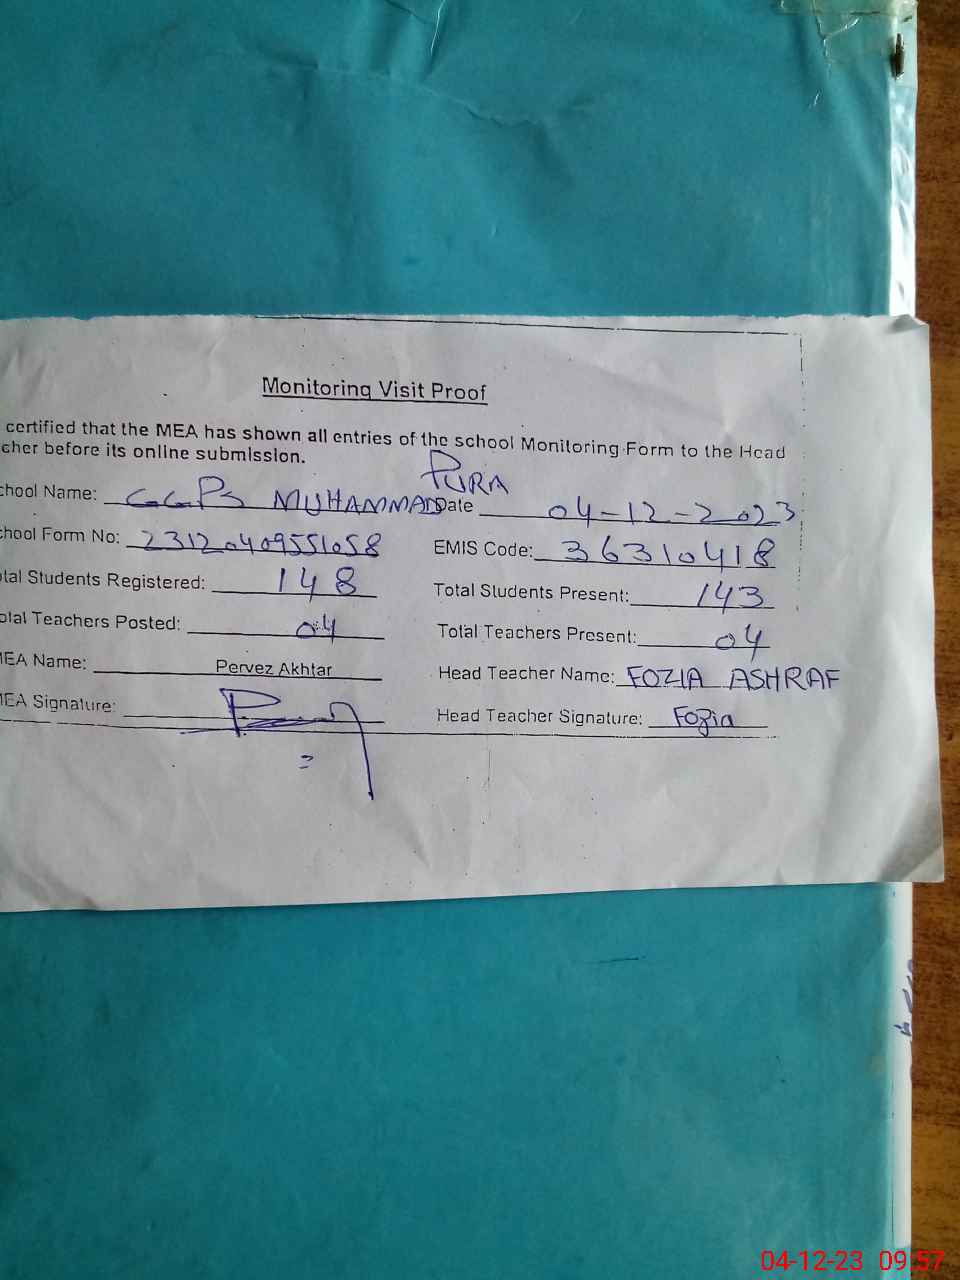 Monitoring Visit Proof
certified that the MEA has shown all entries of the school Monitoring Form to the Head
cher before its online submission.
chool Name: GGPS MUHAMMAD PURA Date 04-12-2023
chool Form No: 23120409551058 EMIS Code: 36310418
tal Students Registered: 148 Total Students Present: 143
otal Teachers Posted: 04 Total Teachers Present: 04
MEA Name: Pervez Akhtar Head Teacher Name: FOZIA ASHRAF
MEA Signature: Head Teacher Signature: Fozia
04-12-23 09:57